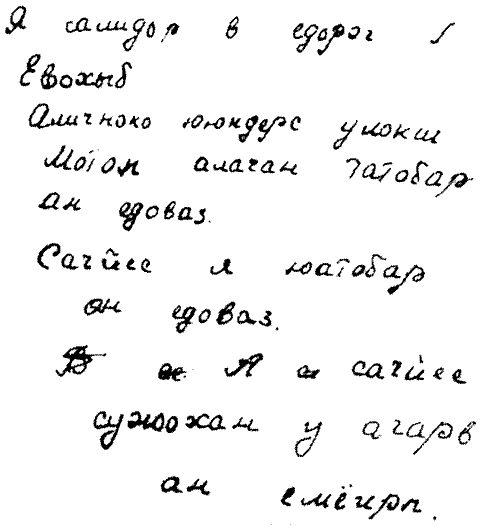 Я салидор в едорог
Евохыб
Аличноко ююндерс улокш
Мотоп алачан татобар
ан едоваз.
Сачйес я юатобар
ан едоваз.
А сачйес
сужохан у ачарв
ан емёирп.